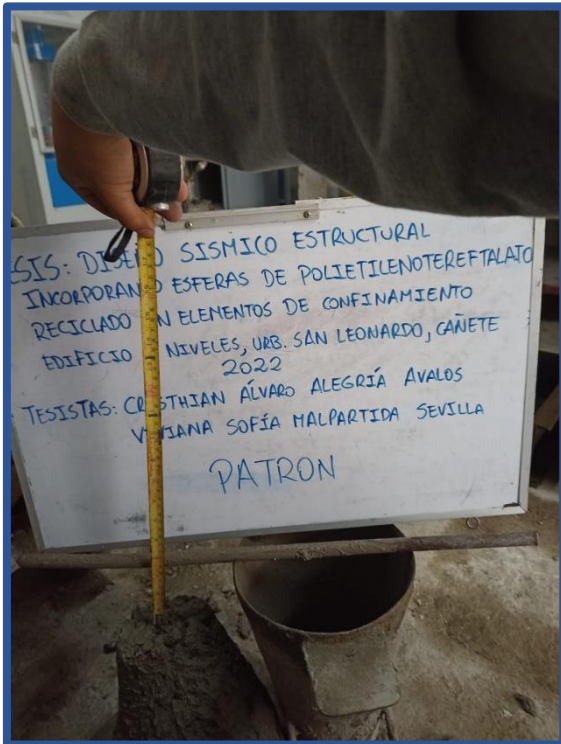 ESIS: DISEÑO SISMICO ESTRUCTURAL
INCORPORAN O ESFERAS DE POLIETILENOTEREFTALATO
RECICLADO N ELEMENTOS DE CONFINAMIENTO
EDIFICIO NIVELES, URB. SAN LEONARDO, CAÑETE
2022
TESISTAS: CR STHIAN ÁLVARO ALEGRÍA AVALOS
V VIANA SOFÍA MALPARTIDA SEVILLA
PATRON